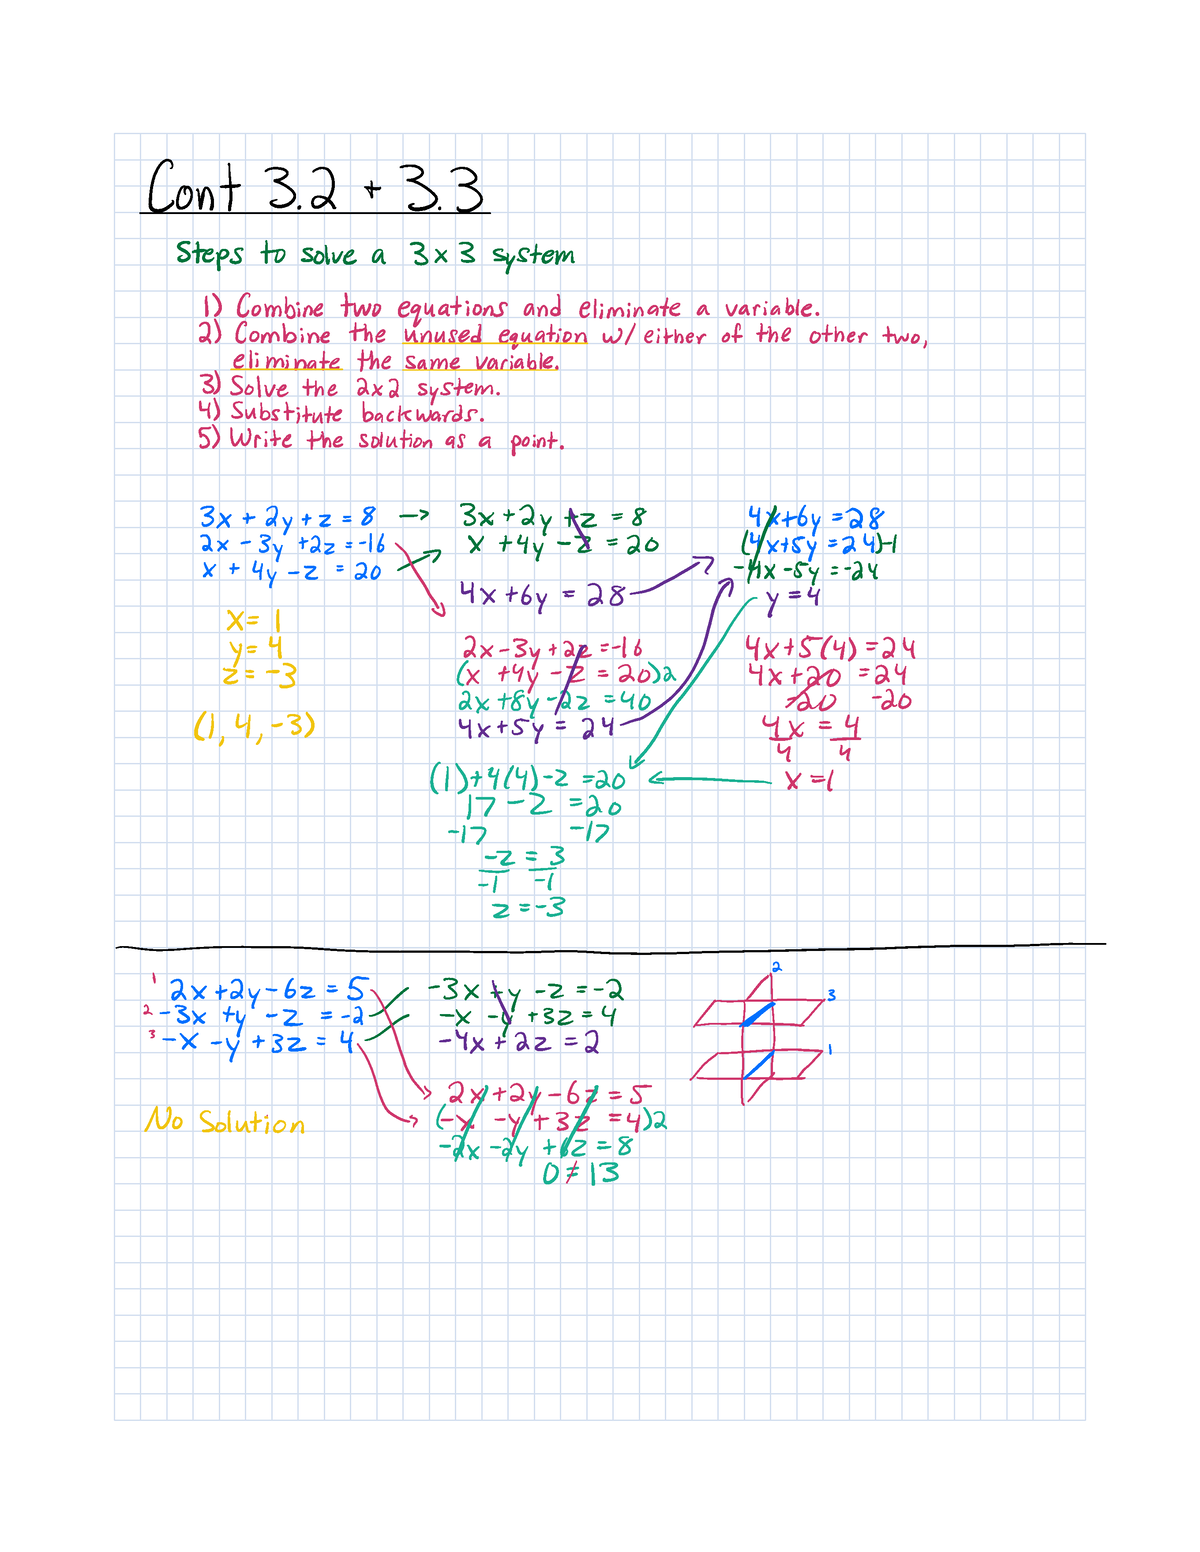 Cont 3.2 + 3.3
Steps to solve a 3x3 system
1) Combine two equations and eliminate a variable.
2) Combine the unused equation w/ either of the other two,
eliminate the same variable.
3) Solve the 2x2 system.
4) Substitute backwards.
5) Write the solution as a point.
3x + 2y + z = 8
2x - 3y +2z = -16
x + 4y - z = 20
x = 1
y = 4
z = -3
(1, 4, -3)
3x + 2y + z = 8
x + 4y - z = 20
4x + 6y = 28
2x - 3y + 2z = -16
(x + 4y - z = 20)2
2x + 8y - 2z = 40
4x + 5y = 24
4x + 6y = 28
(4x + 5y = 24)-1
-4x - 5y = -24
y = 4
4x + 5(4) = 24
4x + 20 = 24
-20 -20
4x = 4
4 4
x = 1
(1) + 4(4) - z = 20
17 - z = 20
-17 -17
-z = 3
-1 -1
z = -3
1 2x + 2y - 6z = 5
2 -3x + y - z = -2
3 -x - y + 3z = 4
No Solution
-3x + y - z = -2
-x - y + 3z = 4
-4x + 2z = 2
2x + 2y - 6z = 5
(-x - y + 3z = 4)2
-2x - 2y + 6z = 8
0 ≠ 13
2
3
1